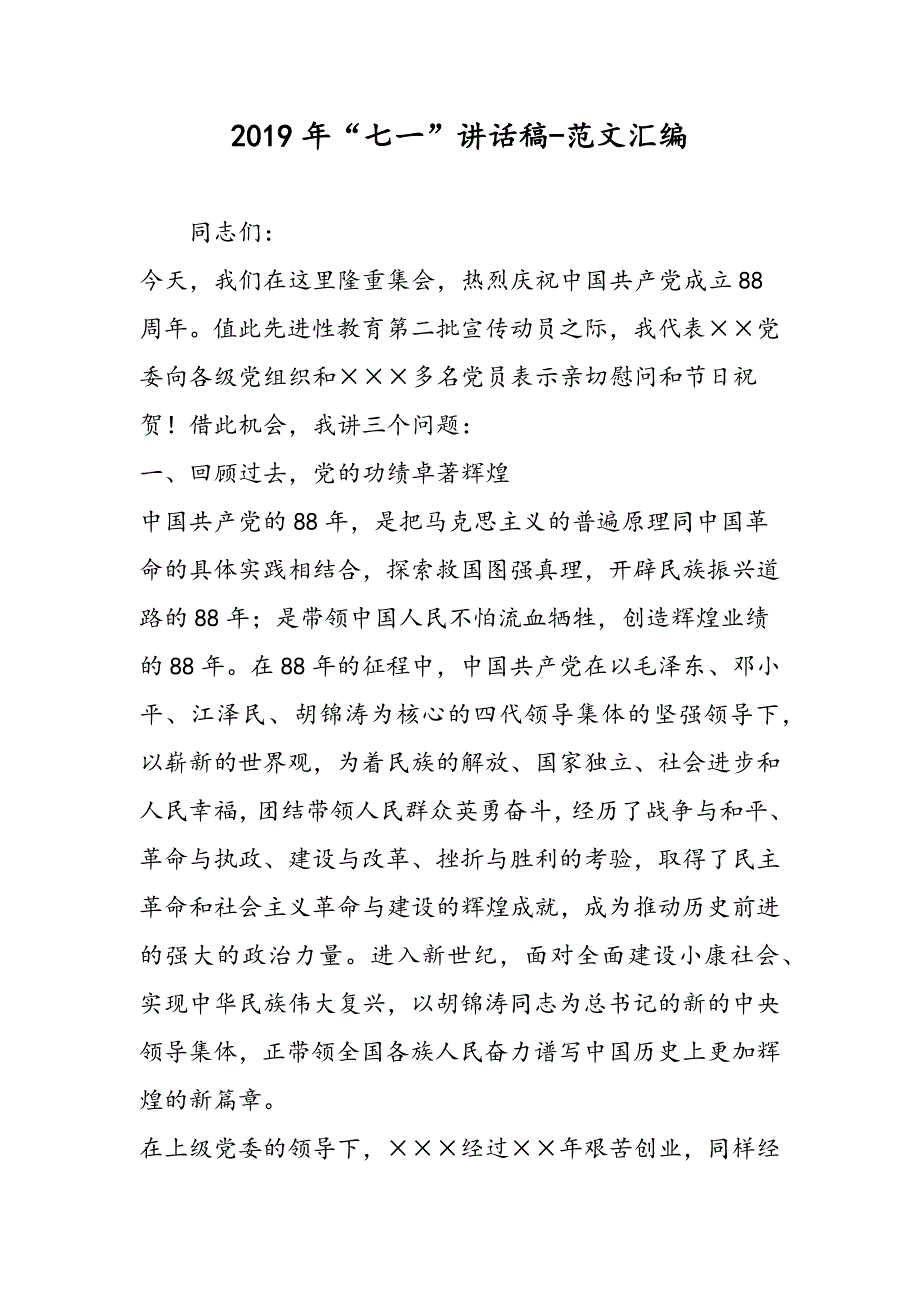 2019年“七一”讲话稿-范文汇编
同志们：
今天，我们在这里隆重集会，热烈庆祝中国共产党成立88
周年。值此先进性教育第二批宣传动员之际，我代表××党
委向各级党组织和×××多名党员表示亲切慰问和节日祝
贺！借此机会，我讲三个问题：
一、回顾过去，党的功绩卓著辉煌
中国共产党的88年，是把马克思主义的普遍原理同中国革
命的具体实践相结合，探索救国图强真理，开辟民族振兴道
路的88年；是带领中国人民不怕流血牺牲，创造辉煌业绩
的88年。在88年的征程中，中国共产党在以毛泽东、邓小
平、江泽民、胡锦涛为核心的四代领导集体的坚强领导下，
以崭新的世界观，为着民族的解放、国家独立、社会进步和
人民幸福，团结带领人民群众英勇奋斗，经历了战争与和平、
革命与执政、建设与改革、挫折与胜利的考验，取得了民主
革命和社会主义革命与建设的辉煌成就，成为推动历史前进
的强大的政治力量。进入新世纪，面对全面建设小康社会、
实现中华民族伟大复兴，以胡锦涛同志为总书记的新的中央
领导集体，正带领全国各族人民奋力谱写中国历史上更加辉
煌的新篇章。
在上级党委的领导下，×××经过××年艰苦创业，同样经